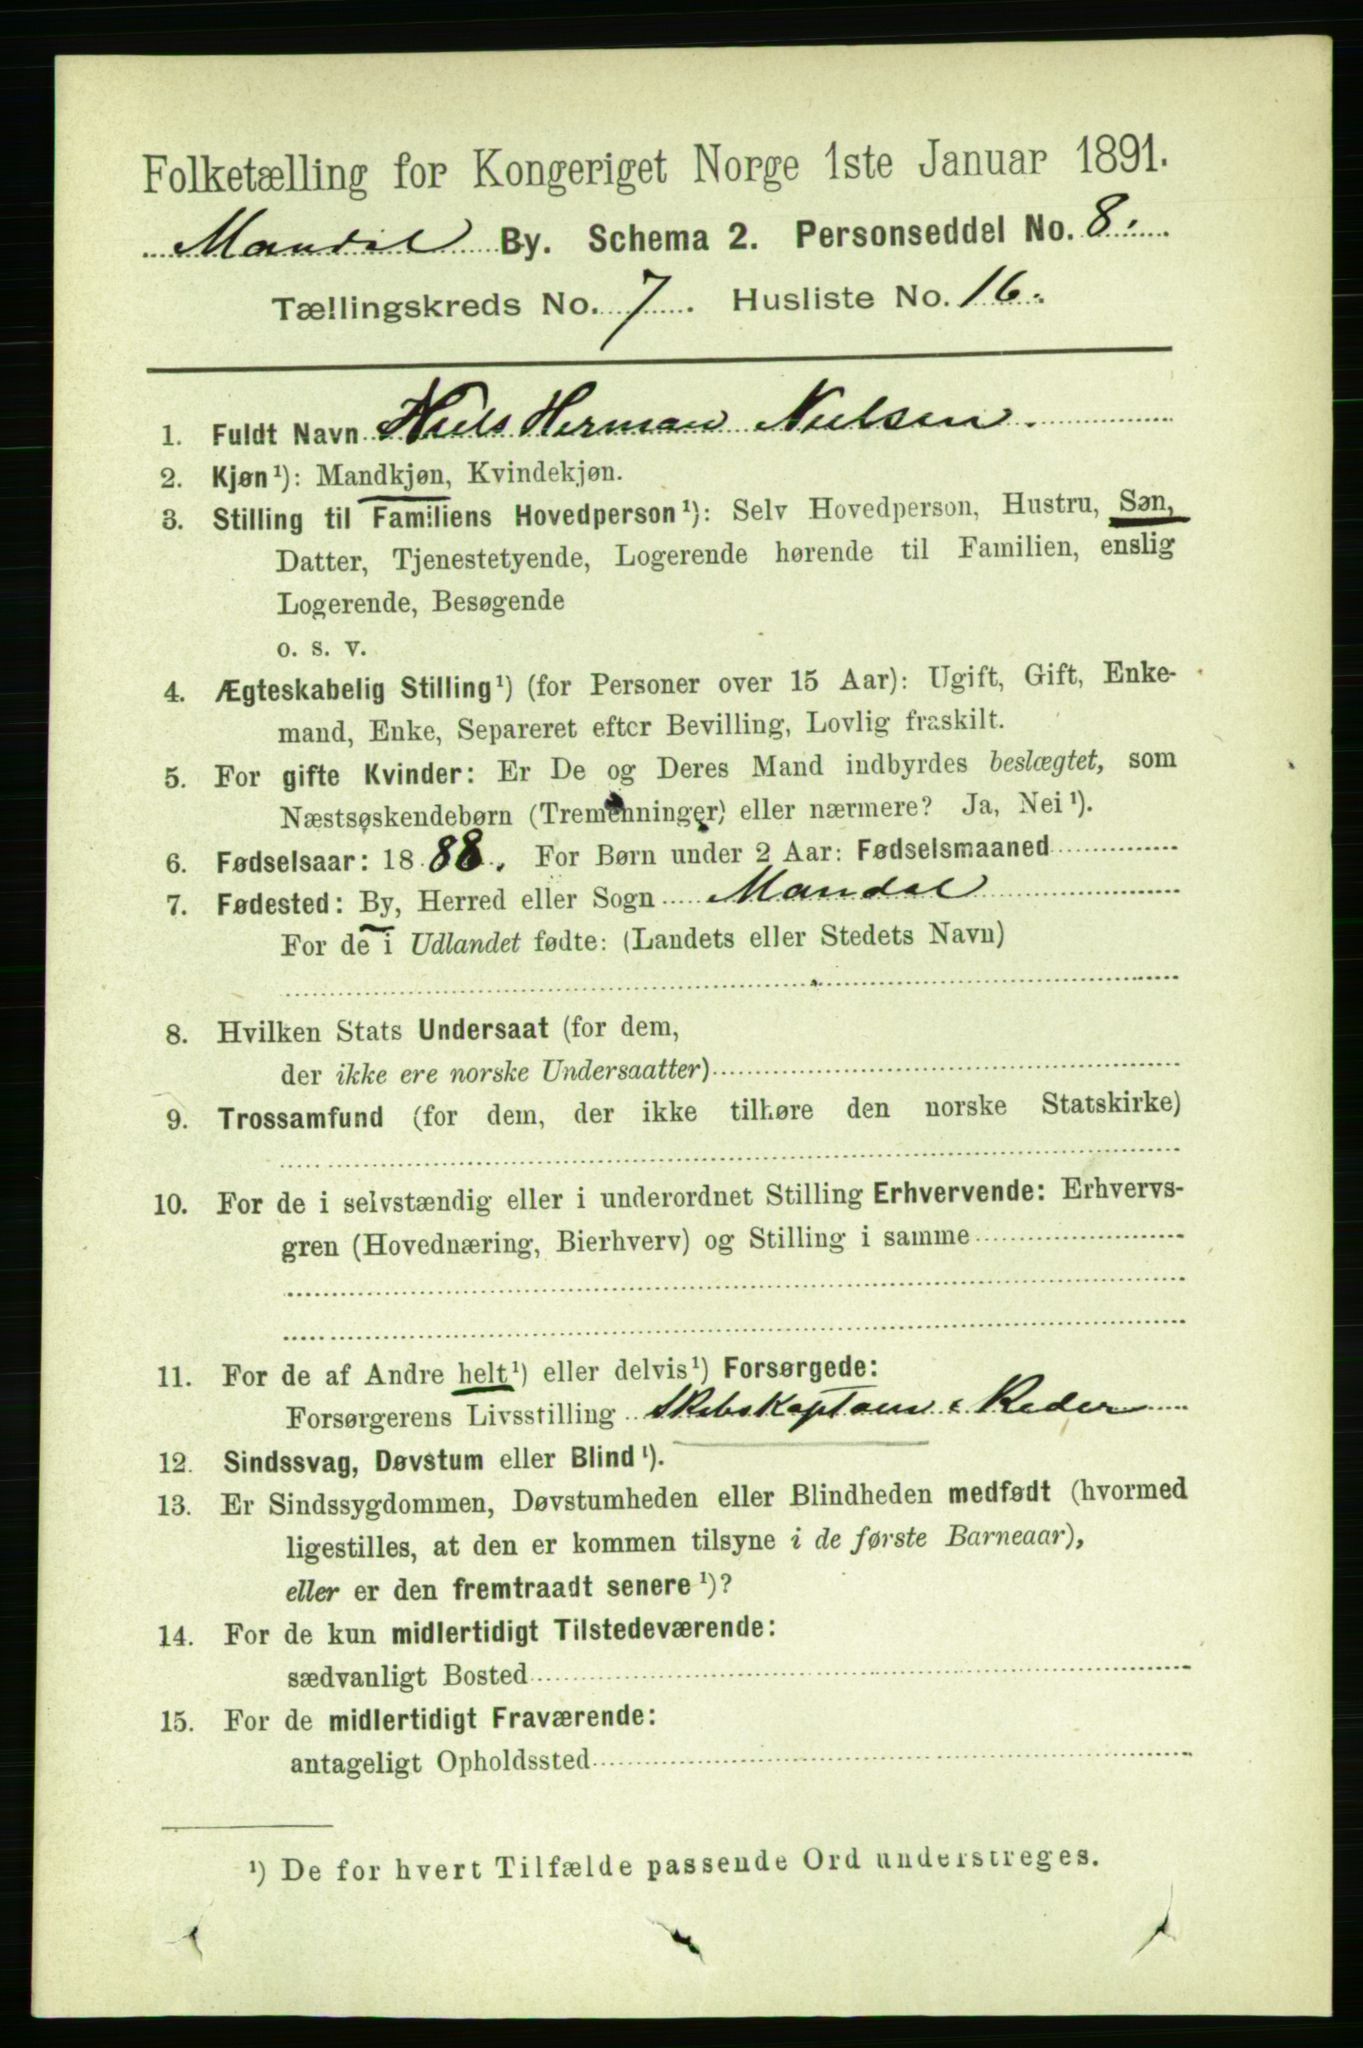 Folketælling for Kongeriget Norge 1ste Januar 1891.
Mandal By. Schema 2. Personseddel No. 8.
Tællingskreds No. 7. Husliste No. 16.
1. Fuldt Navn Niels Herman Nielsen.
2. Kjøn¹): Mandkjøn, Kvindekjøn.
3. Stilling til Familiens Hovedperson¹): Selv Hovedperson, Hustru, Søn,
Datter, Tjenestetyende, Logerende hørende til Familien, enslig
Logerende, Besøgende
o. s. v.
4. Ægteskabelig Stilling¹) (for Personer over 15 Aar): Ugift, Gift, Enke-
mand, Enke, Separeret efter Bevilling, Lovlig fraskilt.
5. For gifte Kvinder: Er De og Deres Mand indbyrdes beslægtet, som
Næstsøskendebørn (Tremenninger) eller nærmere? Ja, Nei¹).
6. Fødselsaar: 1888. For Børn under 2 Aar: Fødselsmaaned
7. Fødested: By, Herred eller Sogn Mandal
For de i Udlandet fødte: (Landets eller Stedets Navn)
8. Hvilken Stats Undersaat (for dem,
der ikke ere norske Undersaatter)
9. Trossamfund (for dem, der ikke tilhøre den norske Statskirke)
10. For de i selvstændig eller i underordnet Stilling Erhvervende: Erhvervs-
gren (Hovednæring, Bierhverv) og Stilling i samme
11. For de af Andre helt¹) eller delvis¹) Forsørgede:
Forsørgerens Livsstilling Skibskaptain & Reder
12. Sindssvag, Døvstum eller Blind¹).
13. Er Sindssygdommen, Døvstumheden eller Blindheden medfødt (hvormed
ligestilles, at den er kommen tilsyne i de første Barneaar),
eller er den fremtraadt senere¹)?
14. For de kun midlertidigt Tilstedeværende:
sædvanligt Bosted
15. For de midlertidigt Fraværende:
antageligt Opholdssted
¹) De for hvert Tilfælde passende Ord understreges.